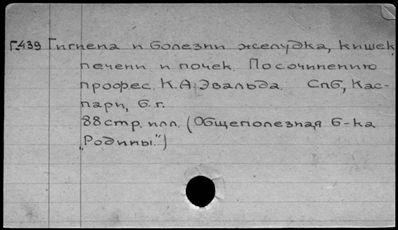 Г-439 Гигиена и болезни желудка, кишек,
печени и почек. По сочинению
профес. К.А. Эвальда. Спб, Кас-
пари, б.г.
88 стр. илл. (Общеполезная б-ка
„Родины.")